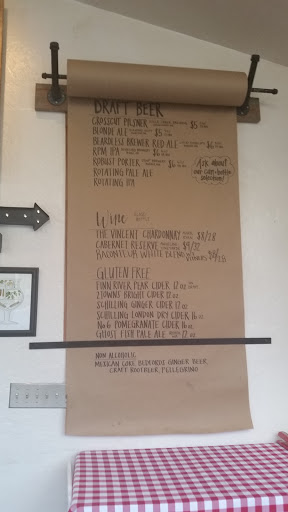 DRAFT BEER
CROSSCUT PILSNER $5
BLONDE ALE $5
BEARDLESS BREWER RED ALE $6
RPM IPA $6
ROBUST PORTER $6
ROTATING PALE ALE
ROTATING IPA
Ask about
our can+bottle
selection!
Wine
THE VINCENT CHARDONNAY $8/28
CABERNET RESERVE $9/32
WHITE BLEND
GLUTEN FREE
FINN RIVER PEAR CIDER 12 oz
2TOWNS BRIGHT CIDER 12 oz
SCHILLING GINGER CIDER 12 oz
SCHILLING LONDON DRY CIDER 16 oz
No6 POMEGRANATE CIDER 16 oz
GHOST FISH PALE ALE 12 oz
NON ALCOHOLIC
MEXICAN COKE, BEDFORDS GINGER BEER,
CRAFT ROOTBEER, PELLEGRINO